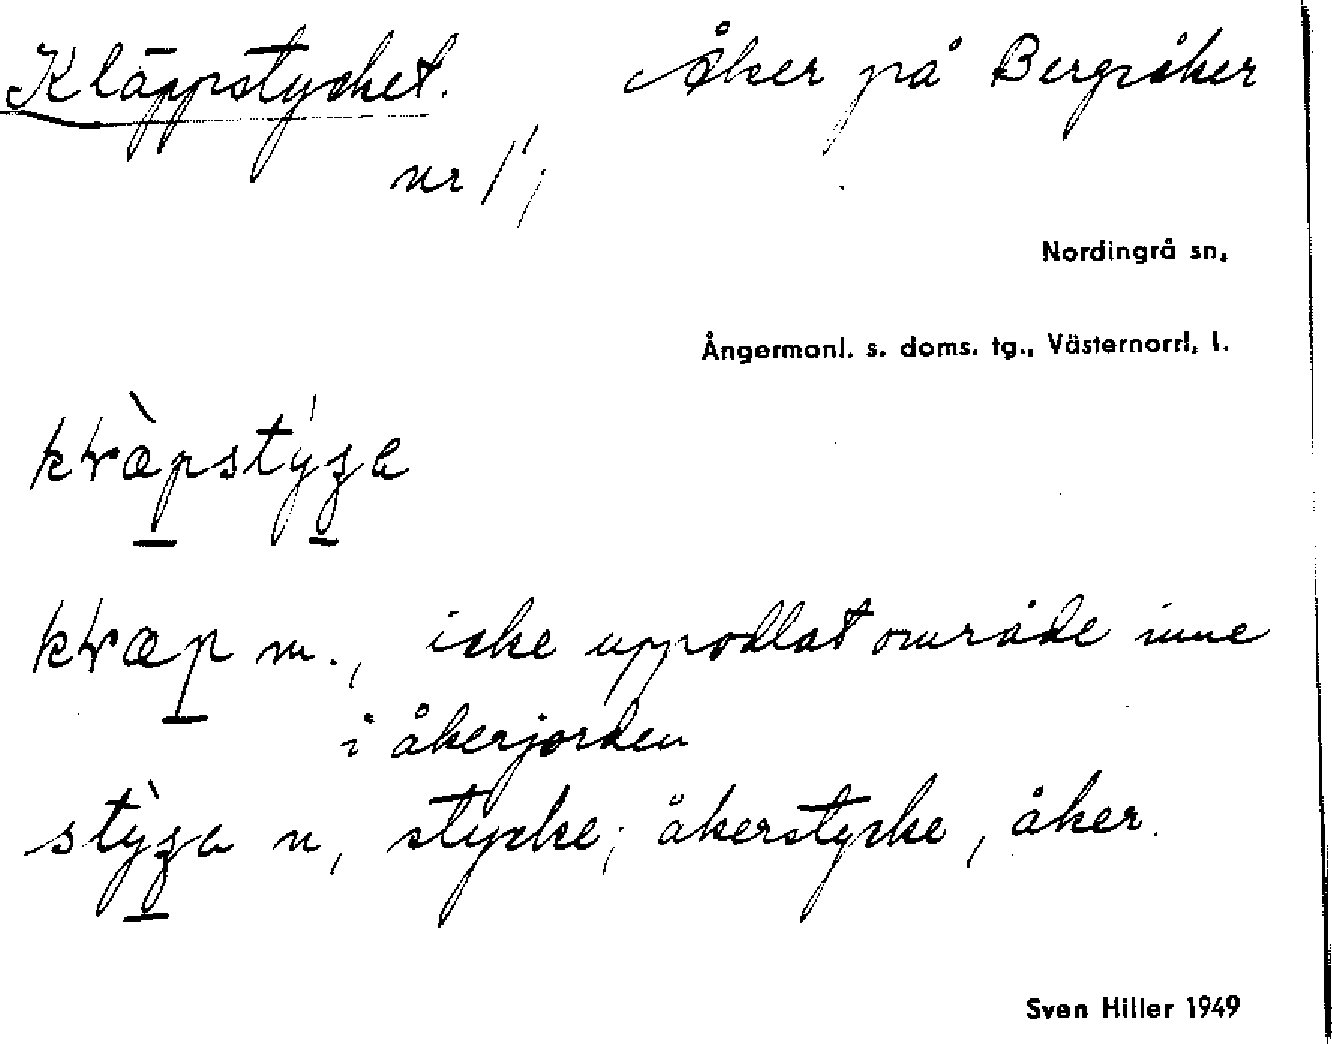 Kläppstycket. Åker på Bergsåker
nr 1';
Nordingrå sn,
Ångermanl. s. doms. tg., Västernorrl. l.
icke uppodlat område inne
i åkerjorden
n, stycke; åkerstycke, åker.
Sven Hiller 1949